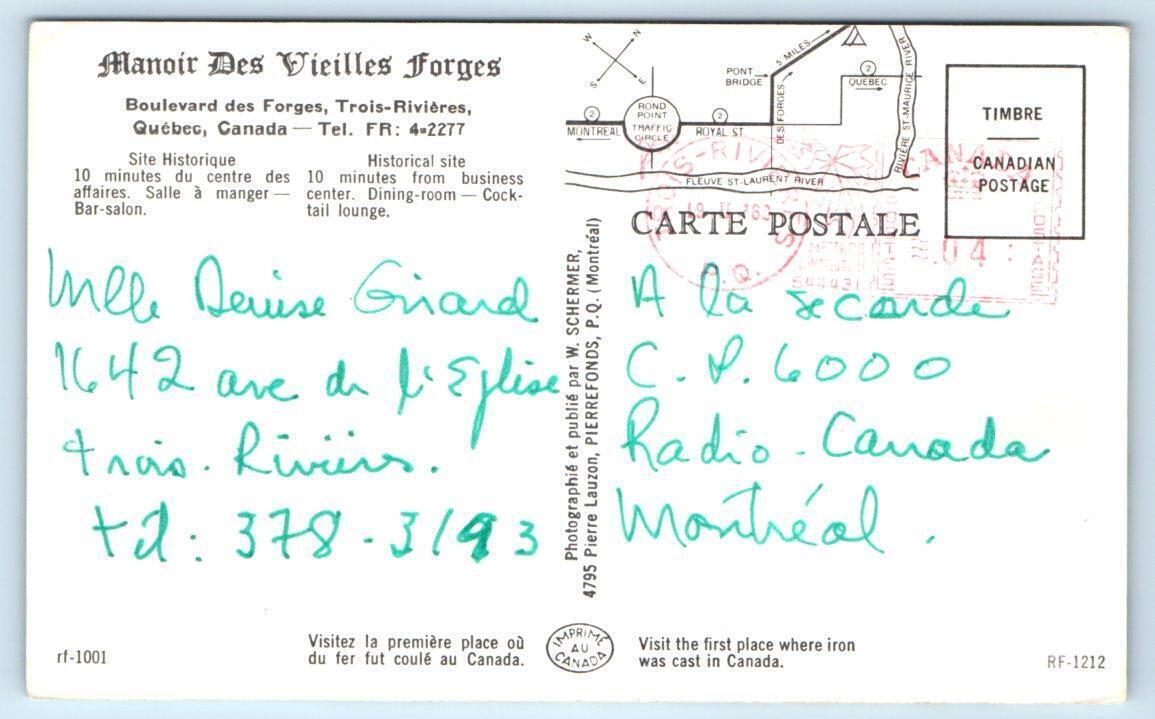 Manoir Des Vieilles Forges
Boulevard des Forges, Trois-Rivières,
Québec, Canada — Tel. FR: 4-2277
Site Historique
10 minutes du centre des
affaires. Salle à manger —
Bar-salon.
Historical site
10 minutes from business
center. Dining-room — Cock-
tail lounge.
W
N
S
E
5 MILES
PONT
BRIDGE
2
QUÉBEC
2
MONTRÉAL
ROND
POINT
TRAFFIC
CIRCLE
2
ROYAL ST.
DES FORGES
RIVIÈRE ST-MAURICE RIVER
FLEUVE ST-LAURENT RIVER
TIMBRE
CANADIAN
POSTAGE
CANADA
TROIS-RIVIERES
P.Q.
04
CARTE POSTALE
Mlle Denise Girard
1642 ave de l'Eglise
trois-Rivières.
tél: 378-3193
Photographié et publié par W. SCHERMER,
4795 Pierre Lauzon, PIERREFONDS, P.Q. (Montréal)
A la seconde
C.P. 6000
Radio-Canada
Montréal.
rf-1001
Visitez la première place où
du fer fut coulé au Canada.
IMPRIMÉ
AU
CANADA
Visit the first place where iron
was cast in Canada.
RF-1212